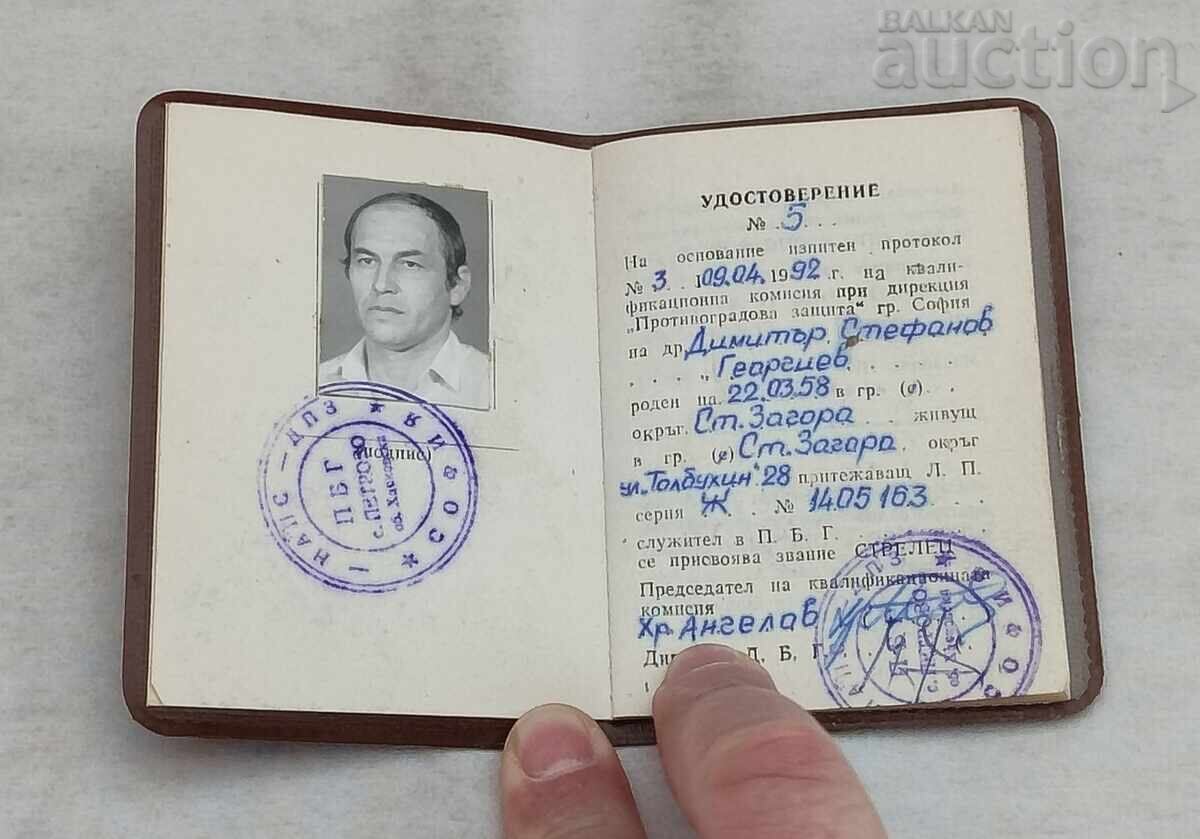 BALKAN
auction
(подпис)
НАПС – ДПЗ ★ ЯИФОЗ ★
ПБГ
УДОСТОВЕРЕНИЕ
№ . 5 . . .
На основание изпитен протокол
№ 3 . 109.04.1992 г. на квали-
фикационна комисия при дирекция
„Противоградова защита" гр. София
на др. Димитър Стефанов
. . . . „ Георгиев . . . . .
роден на 22.03.58 в гр. (с) . .
окръг. Ст. Загора . . живущ
в гр. (с) Ст. Загара . окръг
ул. „Толбухин" 28 притежаващ Л. П.
серия Ж . . № 1405163 . . .
служител в П. Б. Г. . . . . . . .
се присвоява звание СТРЕЛЕЦ
Председател на квалификационната
комисия
Хр. Ангелав